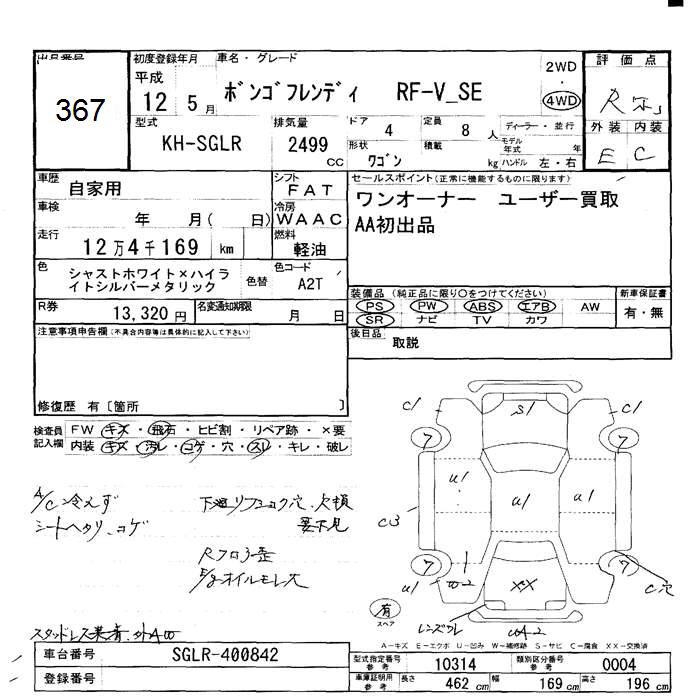 出品番号
367
初度登録年月
平成
12 5月
車名・グレード
ボンゴフレンディ RF-V_SE
2WD
・
4WD
評価点
R
外装 内装
E C
型式
KH-SGLR
排気量
2499 cc
ドア
4
定員
8 人
形状
ワゴン
積載
kg
ディーラー・並行
モデル年式 年
ハンドル 左・右
車歴
自家用
シフト
FAT
車検
年 月( 日)
冷房
WAAC
走行
12万4千169 km
燃料
軽油
色
シャストホワイト×ハイライトシルバーメタリック
色替
色コード
A2T
R券
13,320 円
名変通知期限
月 日
セールスポイント(正常に機能するものに限ります)
ワンオーナー ユーザー買取
AA初出品
装備品(純正品に限り〇をつけてください)
PS PW ABS エアB AW
SR ナビ TV カワ
新車保証書
有・無
後日品
取説
注意事項申告欄(不具合内容等は具体的に記入して下さい)
修復歴 有〔箇所 〕
検査員記入欄
FW キズ・飛石・ヒビ割・リペア跡・×要
内装 キズ・汚レ・コゲ・穴・スレ・キレ・破レ
A/C冷えず
シートヘタリ、コゲ
下廻リフ
要下見
Rフロア歪
E/gオイルモレ大
スタッドレス
C1 S1 C1
7 7
U1 U1 U1
C3
7 7
U1 W2 XX C穴
レンズワレ
有
スペア
A-キズ E-エクボ U-凹み W-補修跡 S-サビ C-腐食 XX-交換済
車台番号
SGLR-400842
登録番号
型式指定番号参考
10314
類別区分番号参考
0004
車庫証明用参考
長さ 462 cm 幅 169 cm 高さ 196 cm